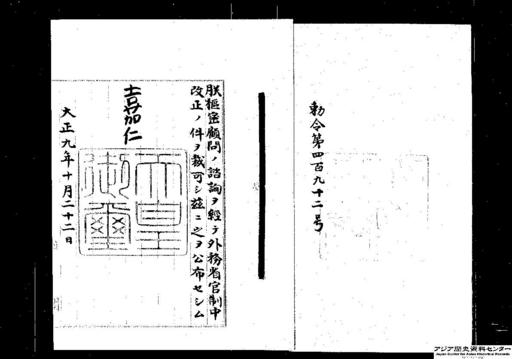 勅令第四百九十二号
朕枢密顧問ノ諮詢ヲ経テ外務省官制中
改正ノ件ヲ裁可シ茲ニ之ヲ公布セシム
嘉仁
天皇
御璽
大正九年十月二十二日
アジア歴史資料センター
Japan Center for Asian Historical Records